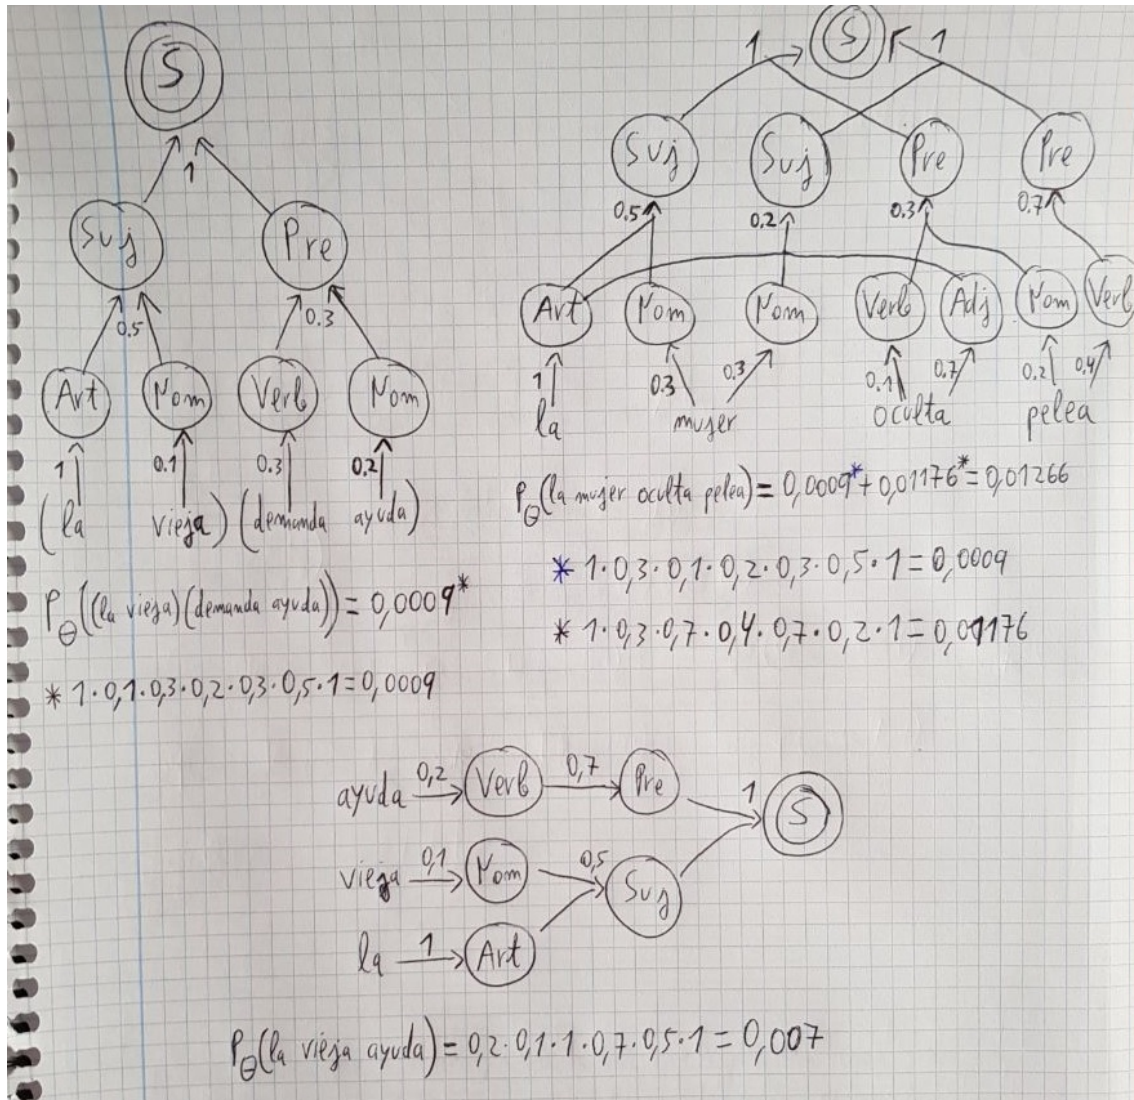 S
1
Suj Pre
0.5 0.3
Art Nom Verb Nom
1 0.1 0.3 0.2
(la vieja) (demanda ayuda)
P_θ((la vieja)(demanda ayuda)) = 0,0009*
* 1·0,1·0,3·0,2·0,3·0,5·1=0,0009
1 S 1
Suj Suj Pre Pre
0.5 0.2 0.3 0.7
Art Nom Nom Verb Adj Nom Verb
1 0.3 0.3 0.1 0.7 0.2 0.4
la mujer oculta pelea
P_θ(la mujer oculta pelea) = 0,0009* + 0,01176* = 0,01266
* 1·0,3·0,1·0,2·0,3·0,5·1=0,0009
* 1·0,3·0,7·0,4·0,7·0,2·1=0,01176
ayuda 0,2 Verb 0,7 Pre 1 S
vieja 0,1 Nom 0,5 Suj
la 1 Art
P_θ(la vieja ayuda) = 0,2·0,1·1·0,7·0,5·1 = 0,007